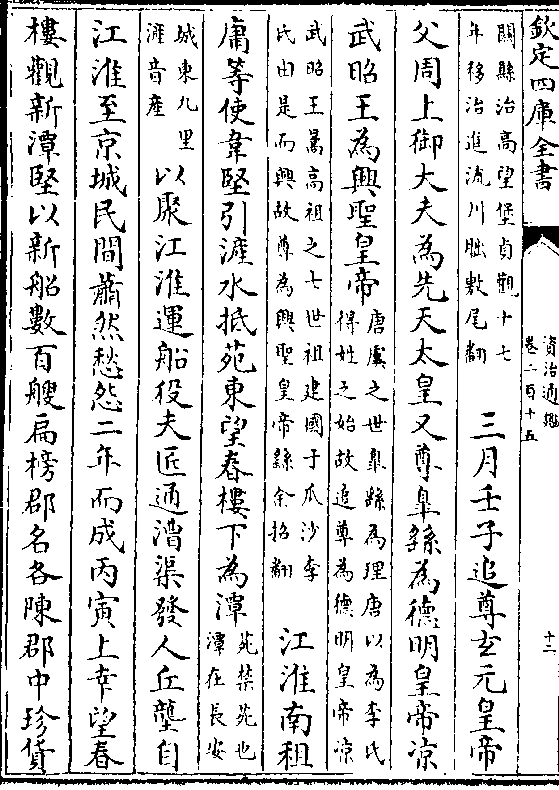 欽定四庫全書
資治通鑑
卷二百十五
十二
關縣治高望堡貞觀十七
年移治進流川朏敷尾翻
三月壬子追尊玄元皇帝
父周上御大夫為先天太皇又尊臯繇為德明皇帝涼
武昭王為興聖皇帝
唐虞之世臯繇為理唐以為李氏
得姓之始故追尊為德明皇帝涼
武昭王暠高祖之七世祖建國于瓜沙李
氏由是而興故尊為興聖皇帝繇余招翻
江淮南租
庸等使韋堅引滻水抵苑東望春樓下為潭
苑禁苑也
潭在長安
城東九里
滻音產
以聚江淮運船役夫匠通漕渠發人丘壟自
江淮至京城民間蕭然愁怨二年而成丙寅上幸望春
樓觀新潭堅以新船數百艘扁榜郡名各陳郡中珍貨